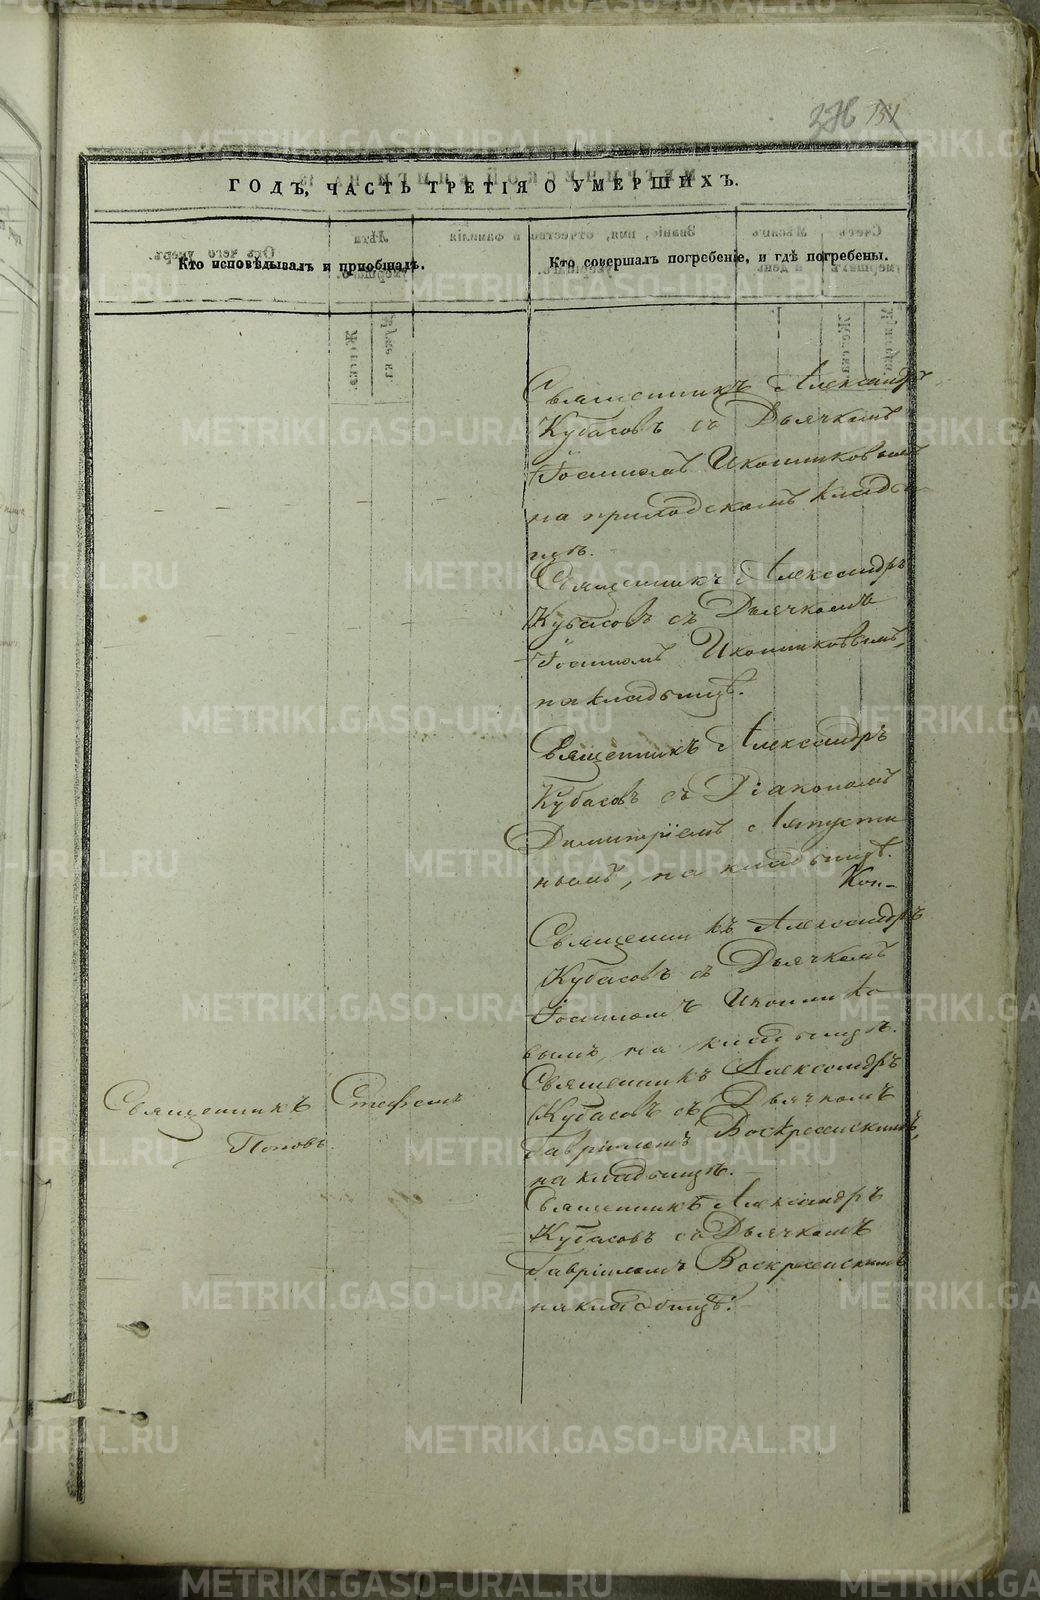 276 151
ГОДЪ, ЧАСТЬ ТРЕТІЯ О УМЕРШИХЪ.
Кто исповѣдывалъ и приобщалъ.
Кто совершалъ погребеніе, и гдѣ погребены.
Священникъ Александръ
Кубасовъ съ Дьячкомъ
Іосифомъ Иконниковымъ
на приходскомъ кладби
щѣ.
Священникъ Александръ
Кубасовъ съ Дьячкомъ
Іосифомъ Иконниковымъ,
на кладбищѣ.
Священникъ Александръ
Кубасовъ съ Діакономъ
Димитріемъ Ляпусти
нымъ, на кладбищѣ.
Коп-
Священникъ Александръ
Кубасовъ съ Дьячкомъ
Іосифомъ Иконнико
вымъ, на кладбищѣ.
Священникъ Стефанъ
Поповъ.
Священникъ Александръ
Кубасовъ съ Дьячкомъ
Гавріиломъ Воскресенскимъ,
на кладбищѣ.
Священникъ Александръ
Кубасовъ съ Дьячкомъ
Гавріиломъ Воскресенскимъ
на кладбищѣ.
METRIKI.GASO-URAL.RU